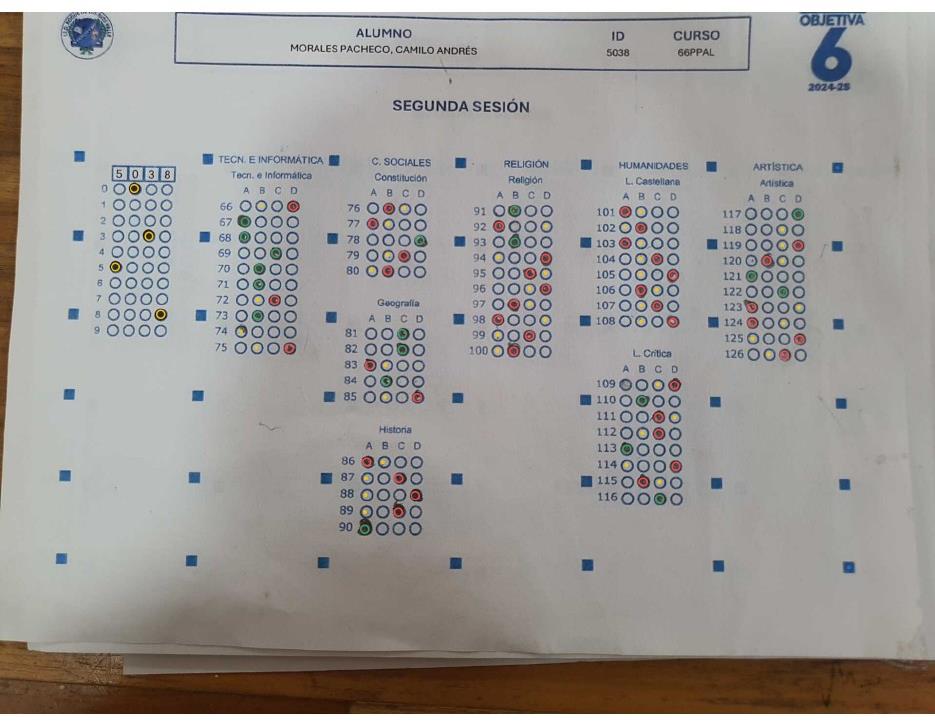 OBJETIVA
6
2024-25
ALUMNO
ID
CURSO
MORALES PACHECO, CAMILO ANDRÉS
5038
66PPAL
SEGUNDA SESIÓN
5 0 3 8
0
1
2
3
4
5
6
7
8
9
TECN. E INFORMÁTICA
Tecn. e Informática
A B C D
66
67
68
69
70
71
72
73
74
75
C. SOCIALES
Constitución
A B C D
76
77
78
79
80
Geografía
A B C D
81
82
83
84
85
Historia
A B C D
86
87
88
89
90
RELIGIÓN
Religión
A B C D
91
92
93
94
95
96
97
98
99
100
HUMANIDADES
L. Castellana
A B C D
101
102
103
104
105
106
107
108
L. Crítica
A B C D
109
110
111
112
113
114
115
116
ARTÍSTICA
Artística
A B C D
117
118
119
120
121
122
123
124
125
126